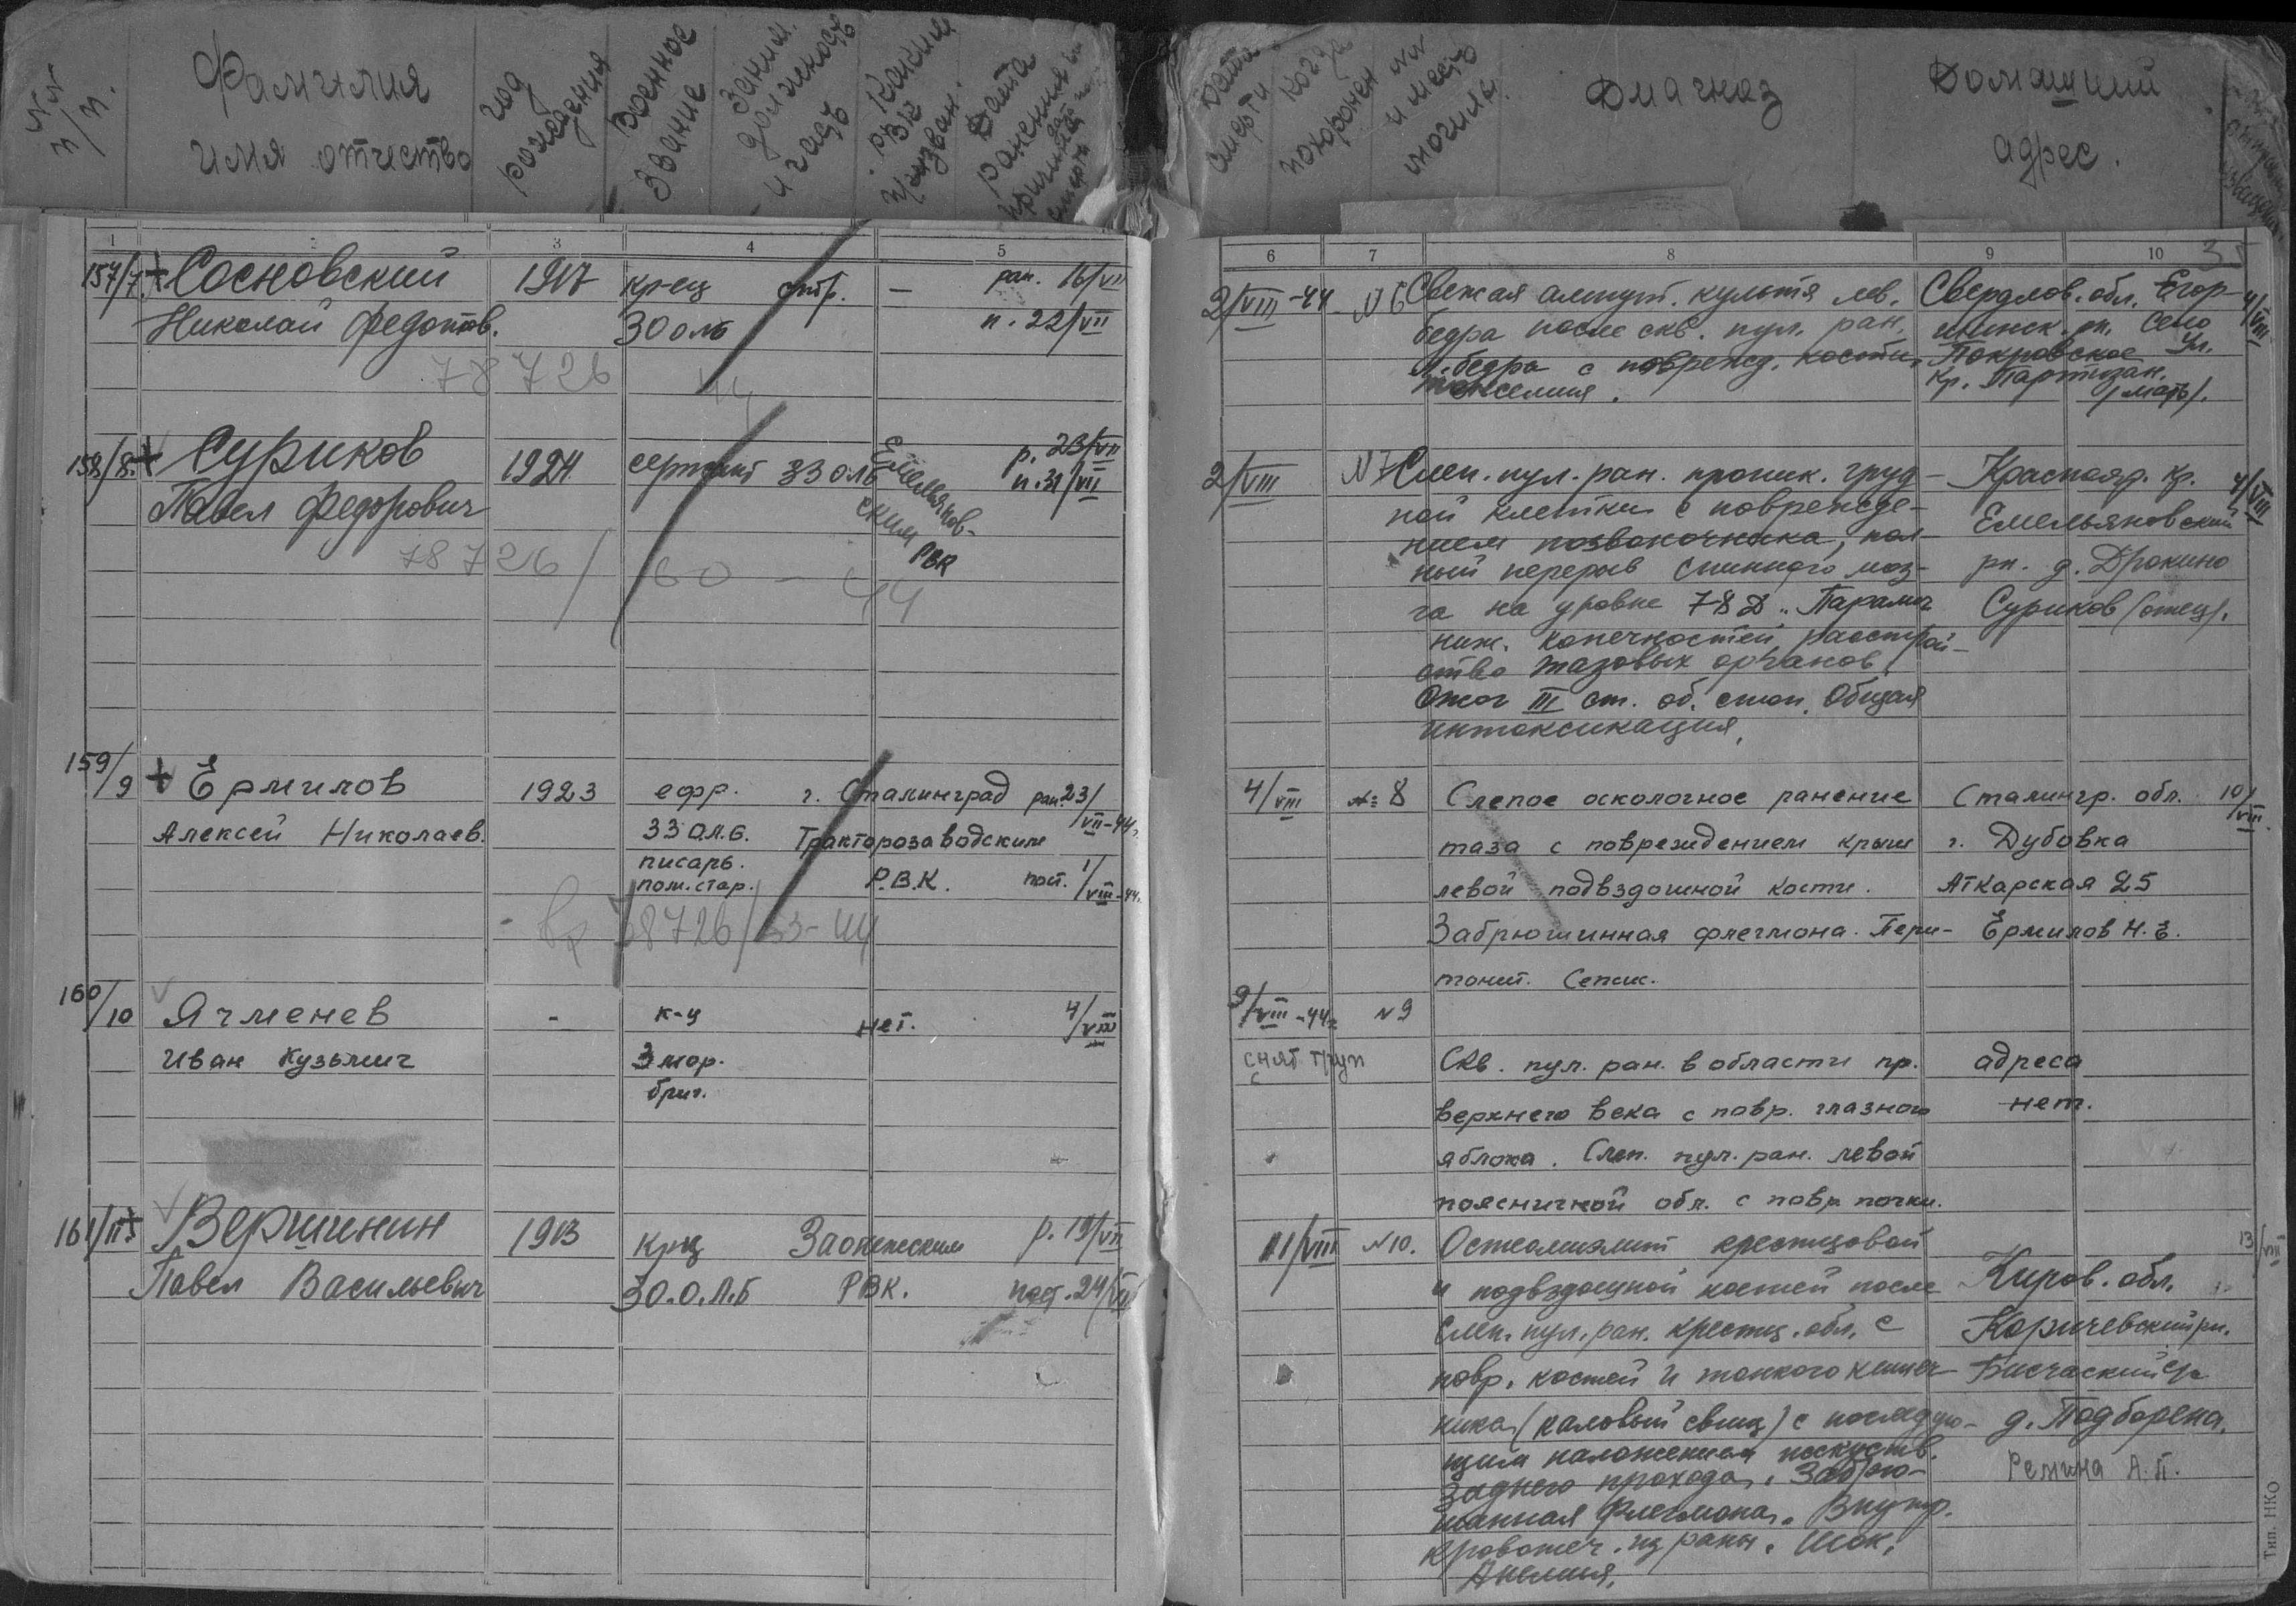 NN п/п.
Фамилия
имя отчество
год рождения
Военное звание
Заним. должность и часть
Каким РВК призван.
Дата ранения
Дата смерти
Когда похоронен
NN и место могилы.
Диагноз
Домашний
адрес.
1 2 3 4 5
6 7 8 9 10
157/7. + Сосновский 1917 кр-ец стр. — ран. 16/VII
Николай Федотов. 30 олб п. 22/VII
78726 44
2/VIII-44 N6 Свежая ампут. культя лев. Свердлов. обл. Егор- 4/VIII
бедра после скв. пул. ран. шинск. рн. Село
л. бедра с поврежд. кости, Покровское Ул.
Кр. Партизан.
(мать).
158/8. + Суриков 1924 сержант 33 олб Емельянов- р. 23/VII
Павел Федорович ским РВК п. 31/VII
78726/ 60 - 44
2/VIII N7 Слеп. пул. ран. проник. груд- Краснояр. кр. 4/VIII
ной клетки с поврежде- Емельяновский
нием позвоночника, пол- рн. д. Дрокино
ный перерыв спинного моз- Суриков (отец).
га на уровне 7-8 Д.
ниж. конечностей, расстрой-
ство тазовых органов
Ожог III ст. об. стоп. Общая
интоксикация,
159/9 + Ермилов 1923 ефр. г. Сталинград ран. 23/VII-44г.
Алексей Николаев. 33 ол.б. Тракторозаводским
писарь. Р.В.К. пост. 1/VIII-44.
пом. стар.
78726/53-44
4/VIII № 8 Слепое осколочное ранение Сталингр. обл. 10/VIII.
таза с повреждением крыш г. Дубовка
левой подвздошной кости. Аткарская 25
Забрюшинная флегмона. Пери- Ермилов Н. Е.
тонит. Сепсис.
160/10 Ячменев - к-ц нет. 4/VIII
Иван Кузьмич 3 мор.
бриг.
9/VIII-44г N9
снят труп Скв. пул. ран. в области пр. адреса
верхнего века с повр. глазного нет.
яблока. Слеп. пул. ран. левой
поясничной обл. с повр почки.
161/11 + Вершинин 1913 крц Заонежским р. 19/VII
Павел Васильевич 30.О.Л.Б РВК. пост. 24/VII
11/VIII N10. Остеомиэлит крестцовой 13/VIII
и подвздошной костей после Киров. обл.
Слеп. пул. ран. крестц. обл. с
повр. костей и тонкого кишеч-
ника (каловый свищ) с последую- д. Подборена,
щим наложением искуств.
заднего прохода. Забрю- Ремина А.П.
шинная флегмона. Внутр.
кровотеч. из раны. Шок.
Анемия,
Тип. НКО